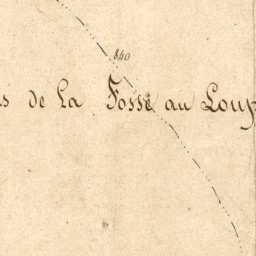 840
s de la Fosse au Loup